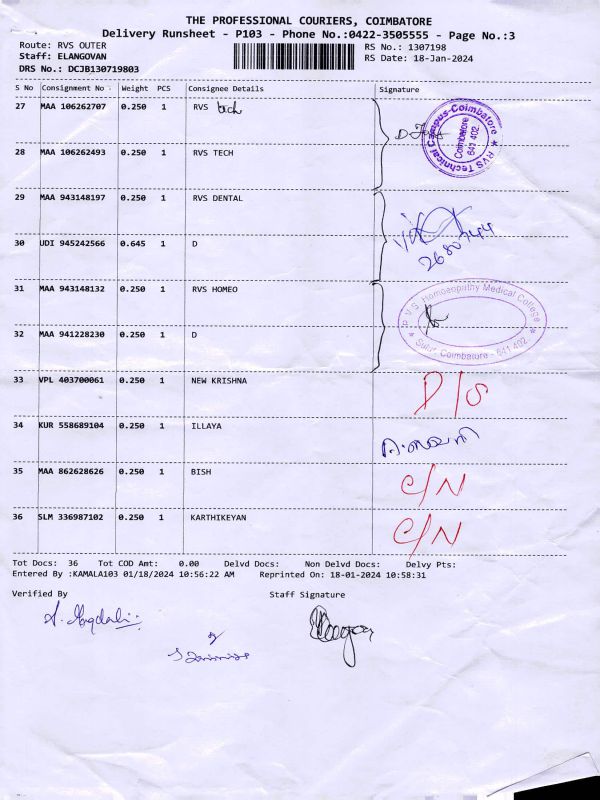 THE PROFESSIONAL COURIERS, COIMBATORE
Delivery Runsheet - P103 - Phone No.:0422-3505555 - Page No.:3
Route: RVS OUTER RS No.: 1307198
Staff: ELANGOVAN RS Date: 18-Jan-2024
DRS No.: DCJB130719803
S No Consignment No Weight PCS Consignee Details Signature
27 MAA 106262707 0.250 1 RVS tech
RVS Technical Campus-Coimbatore
Coimbatore
641 402
28 MAA 106262493 0.250 1 RVS TECH
29 MAA 943148197 0.250 1 RVS DENTAL
2680744
30 UDI 945242566 0.645 1 D
31 MAA 943148132 0.250 1 RVS HOMEO
R.V.S. Homoeopathy Medical College
Sulur, Coimbatore - 641 402
32 MAA 941228230 0.250 1 D
33 VPL 403700061 0.250 1 NEW KRISHNA D/S
34 KUR 558689104 0.250 1 ILLAYA
35 MAA 862628626 0.250 1 BISH C/N
36 SLM 336987102 0.250 1 KARTHIKEYAN C/N
Tot Docs: 36 Tot COD Amt: 0.00 Delvd Docs: Non Delvd Docs: Delvy Pts:
Entered By :KAMALA103 01/18/2024 10:56:22 AM Reprinted On: 18-01-2024 10:58:31
Verified By Staff Signature